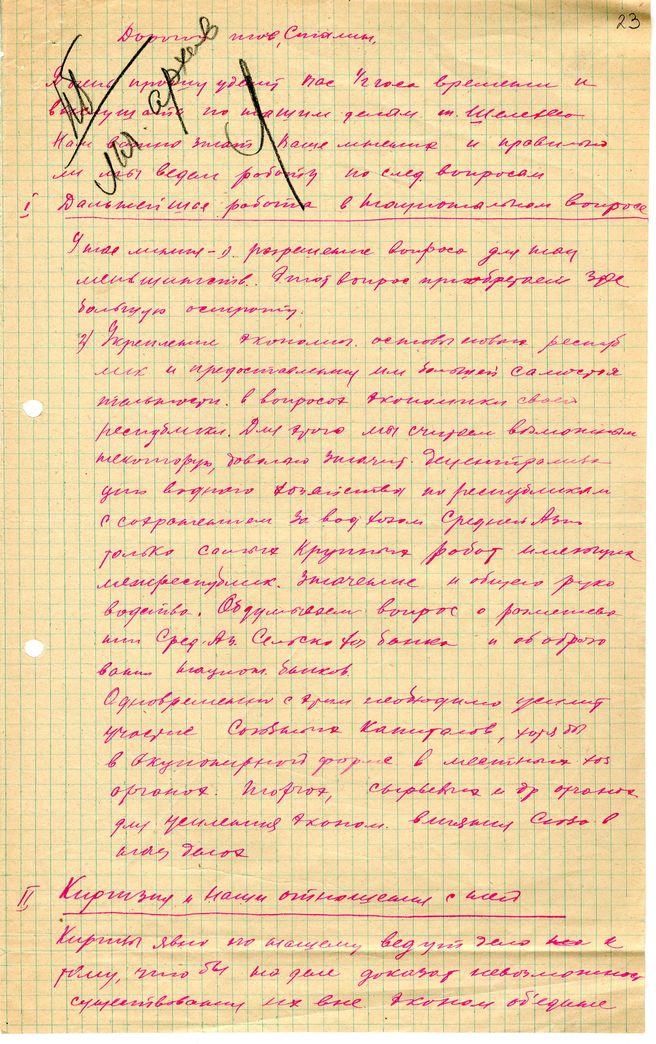 23
Дорогой тов. Сталин,
Очень прошу уделит Вас 1/2 часа времени и
выслушать по нашим делам т. Шеленко
Нам важно знать Ваше мнение и правильно
ли мы ведем работу по след вопросам
I Дальнейшая работа в национальном вопросе
разрешение вопроса для нац
меньшинств. Этот вопрос приобретает здесь
большую остроту.
2) Укрепление эконом. основы новых республ
лик и предоставлении им большей самостоя
тельности в вопросах экономики своей
республики. Для этого мы считаем возможным
некоторую, довольно значит. децентрализа
цию водного хозяйства по республикам
с сохранением за вод хозом Средней Азии
только самых крупных работ имеющих
межреспублик. значение и общего руко
водства. Обдумываем вопрос о размежева
нии Сред.-Аз. Сельско хоз банка и об образо
вании национ. банков.
Одновременно с этим необходимо усилит
участие Союзных Капиталов, хотя бы
в акционерной форме в местных хоз
органах. торгах, сырьевых и др органах
для усиления эконом. влияния Союза в
этих делах
II Киргизия и наши отношения с ней
Киргизы явно по нашему ведут дело к
тому, что бы на деле доказат невозможност
существования их вне эконом объедине